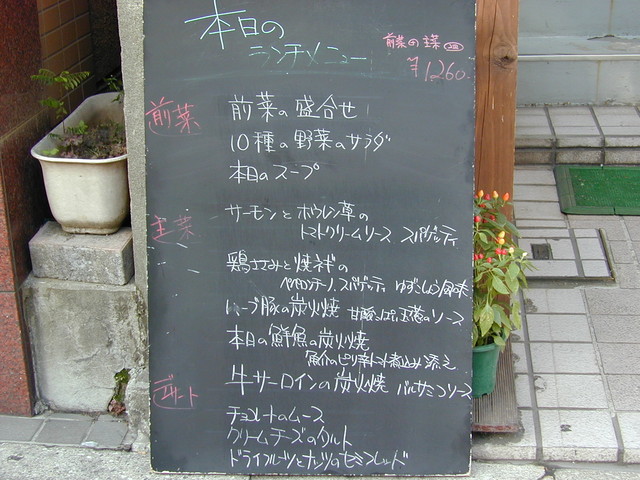 本日の
ランチメニュー
前菜 の 主菜
¥1260.
前菜
前菜の盛合せ
10種の野菜のサラダ
本日のスープ
主菜
サーモンとホウレン草の
トマトクリームソース スパゲッティ
鶏ささみと焼ネギの
ペペロンチーノ スパゲッティ ゆずこしょう風味
ハーブ豚の炭火焼 甘酸っぱい玉葱のソース
本日の鮮魚の炭火焼
魚介のピリ辛トマト煮込み添え
牛サーロインの炭火焼 バルサミコソース
デザート
チョコレートのムース
クリームチーズのタルト
ドライフルーツとナッツのセミフレッド